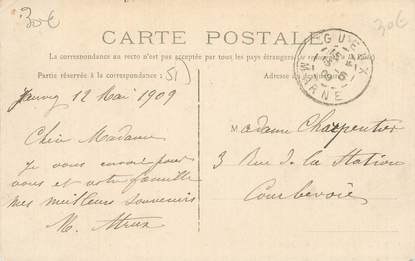 30€
30€
CARTE POSTALE
La correspondance au recto n'est pas acceptée par tous les pays étrangers
Partie réservée à la correspondance
Adresse du destinataire
51)
GUEUX
MARNE
12 Mai 1909
Chère Madame
Je vous envoie pour
vous et votre famille
mes meilleurs souvenirs
Madame Charpentier
3 Rue de la Station
Courbevoie